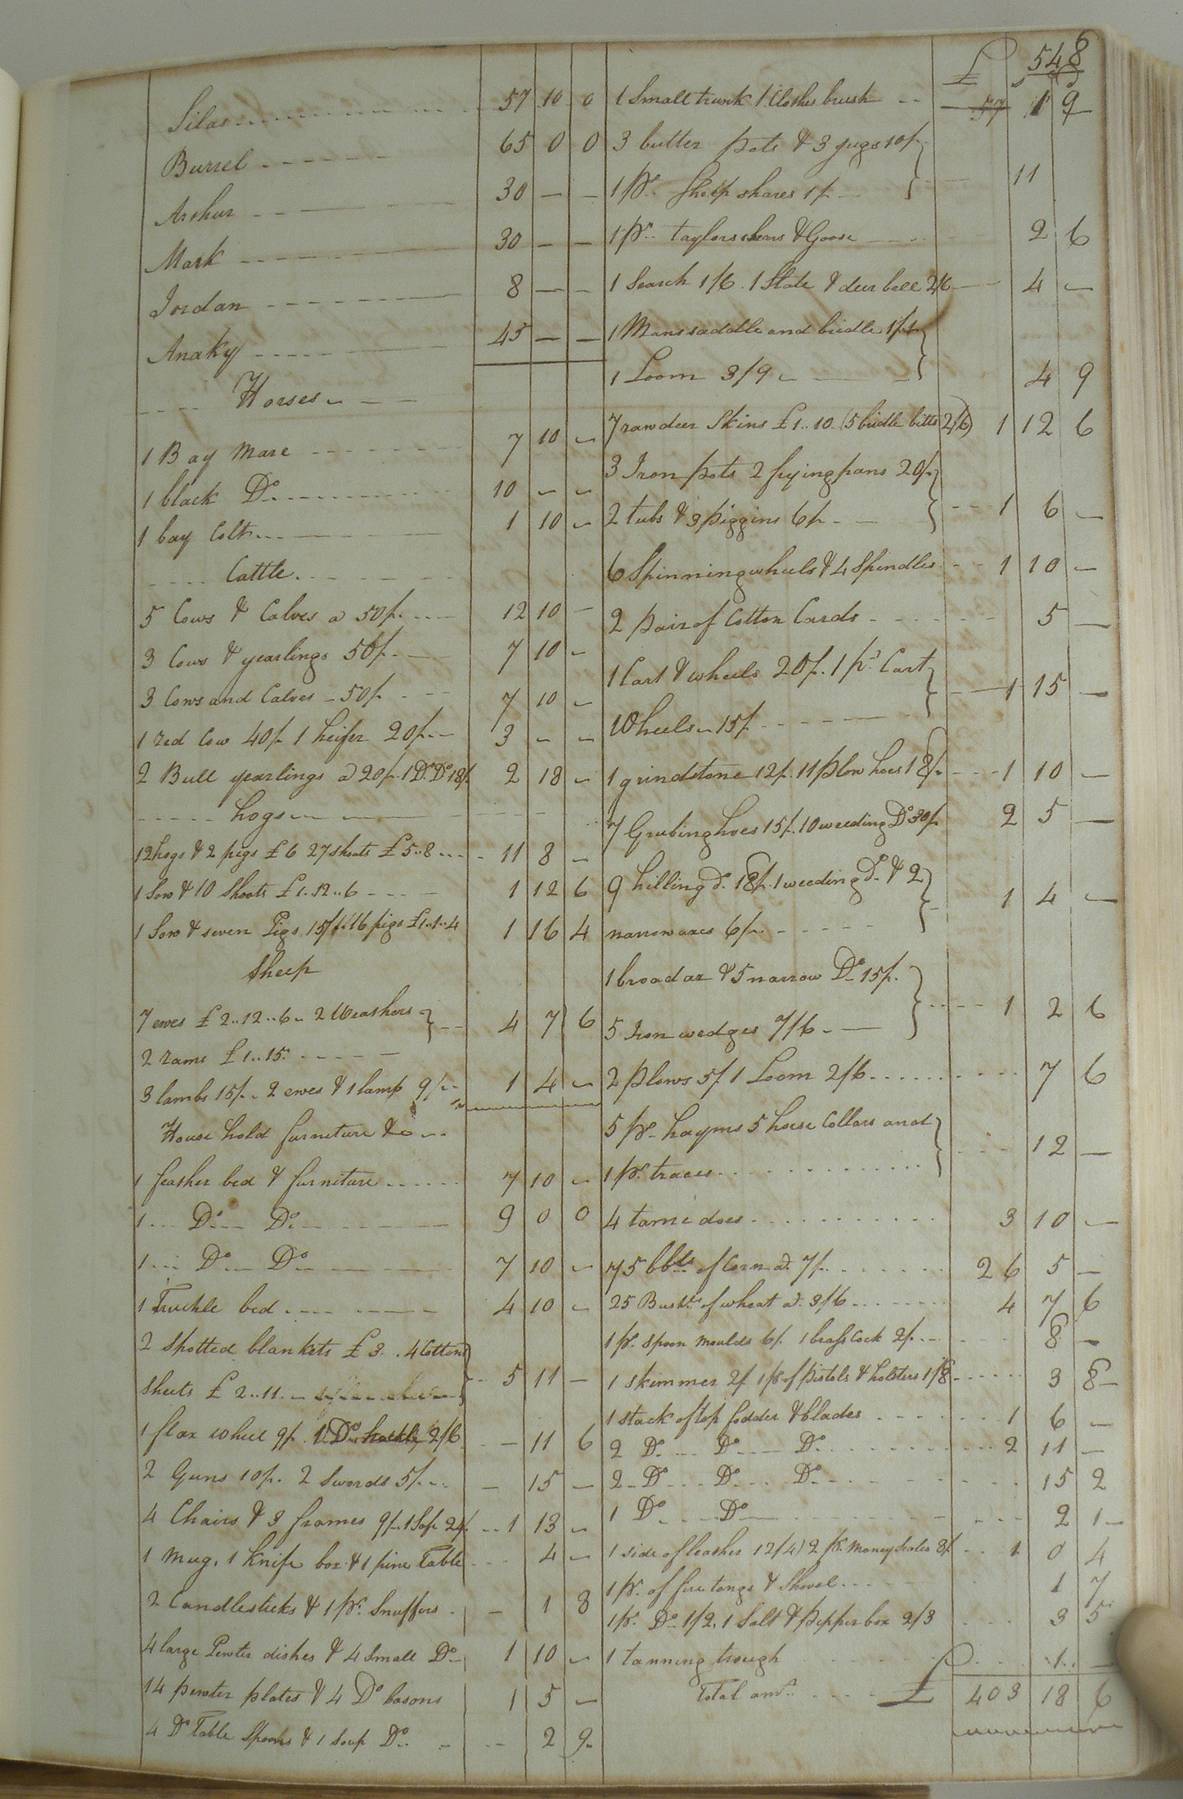 548
6
Silas 57 10 0
Burrel 65 0 0
Arthur 30 — —
Mark 30 — —
Jordan 8 — —
Anaky 45 — —
Horses
1 Bay Mare 7 10 —
1 black Do. 10 — —
1 bay Colt 1 10 —
Cattle
5 Cows & Calves a 50/. 12 10 —
3 Cows & yearlings 50/. 7 10 —
3 Cows and Calves 50/. 7 10 —
1 red Cow 40/. 1 heifer 20/. 3 — —
2 Bull yearlings a 20/. 1 Do. Do. 18/. 2 18 —
hogs
12 hogs & 2 pigs £6 27 shoats £5..8 11 8 —
1 Sow & 10 Shoats £1..12..6 1 12 6
1 Sow & seven Pigs 15/. 16 pigs £1..1..4 1 16 4
Sheep
7 ewes £2..12..6 2 Weathers
2 rams £1..15. 4 7 6
3 lambs 15/. 2 ewes & 1 lamp 9/. 1 4 —
House hold furneture &c
1 feather bed & furneture 7 10 —
1 Do. Do. 9 0 0
1 Do. Do. 7 10 —
1 Truckle bed 4 10 —
2 Spotted blankets £3. 4 Cotton
sheets £2..11. 5 11 —
1 flax wheel 9/. 1 Do. 2/6 — 11 6
2 Guns 10/. 2 Swords 5/. — 15 —
4 Chairs & 3 frames 9/. 1 24/. 1 13 —
1 mug, 1 Knife box & 1 pine Table 4 —
2 Candlesticks & 1 pr. Snuffers — 1 3
4 large Pewter dishes & 4 Small Do. 1 10 —
14 pewter plates & 4 Do. basons 1 5 —
4 Do. Table Spoons & 1 Soup Do. 2 9
£
1 Small trunk 1 Clothes brush 1 9
3 butter pots & 3 jugs 10/.
1 pr. Sheep shares 1/. 11
1 pr. taylors shears & Goose 2 6
1 Search 1/6. 1 Slate & deer bell 2/6 4 —
1 Mans saddle and bridle 1/.
1 Loom 3/9 4 9
7 raw deer Skins £1..10 (5 bridle bitts 2/6) 1 12 6
3 Iron pots 2 frying pans 20/.
2 tubs & 3 piggins 6/. 1 6 —
6 Spinning wheels & 4 Spindles 1 10 —
2 pair of Cotton Cards 5 —
1 Cart & wheels 20/. 1 pr. Cart
Wheels 15/. 1 15 —
1 grindstone 12/. 11 plow hoes 18/. 1 10 —
7 Grubing hoes 15/. 10 weeding Do. 30/. 2 5 —
9 hilling do. 18/. 1 weeding Do. & 2
narrow axes 6/. 1 4 —
1 broad ax & 5 narrow Do. 15/.
5 Iron wedges 7/6 1 2 6
2 plows 5/ 1 Loom 2/6 7 6
5 pr. hayms 5 horse Collars and
1 pr. traces 12 —
4 tame does 3 10 —
75 bbls. of Corn a. 7/. 26 5 —
25 Bushs. of wheat a. 3/6 4 7 6
1 pr. spoon moulds 6/. 1 brass Cock 2/. 8 —
1 skimmer 2/ 1 pr. of pistols & holsters 1/8 3 8
1 stack of top fodder & blades 1 6 —
2 Do. Do. Do. 2 11 —
2 Do. Do. Do. 15 2
1 Do. Do. 2 1
1 side of leather 12/4) 2 pr. Money Scales 8/. 1 0 4
1 pr. of fire tongs & Shovel 1 7
1 pr. Do. 1/2. 1 Salt & Pepper box 2/3 3 5
1 tanning trough 1 —
Total amt. £ 403 18 6